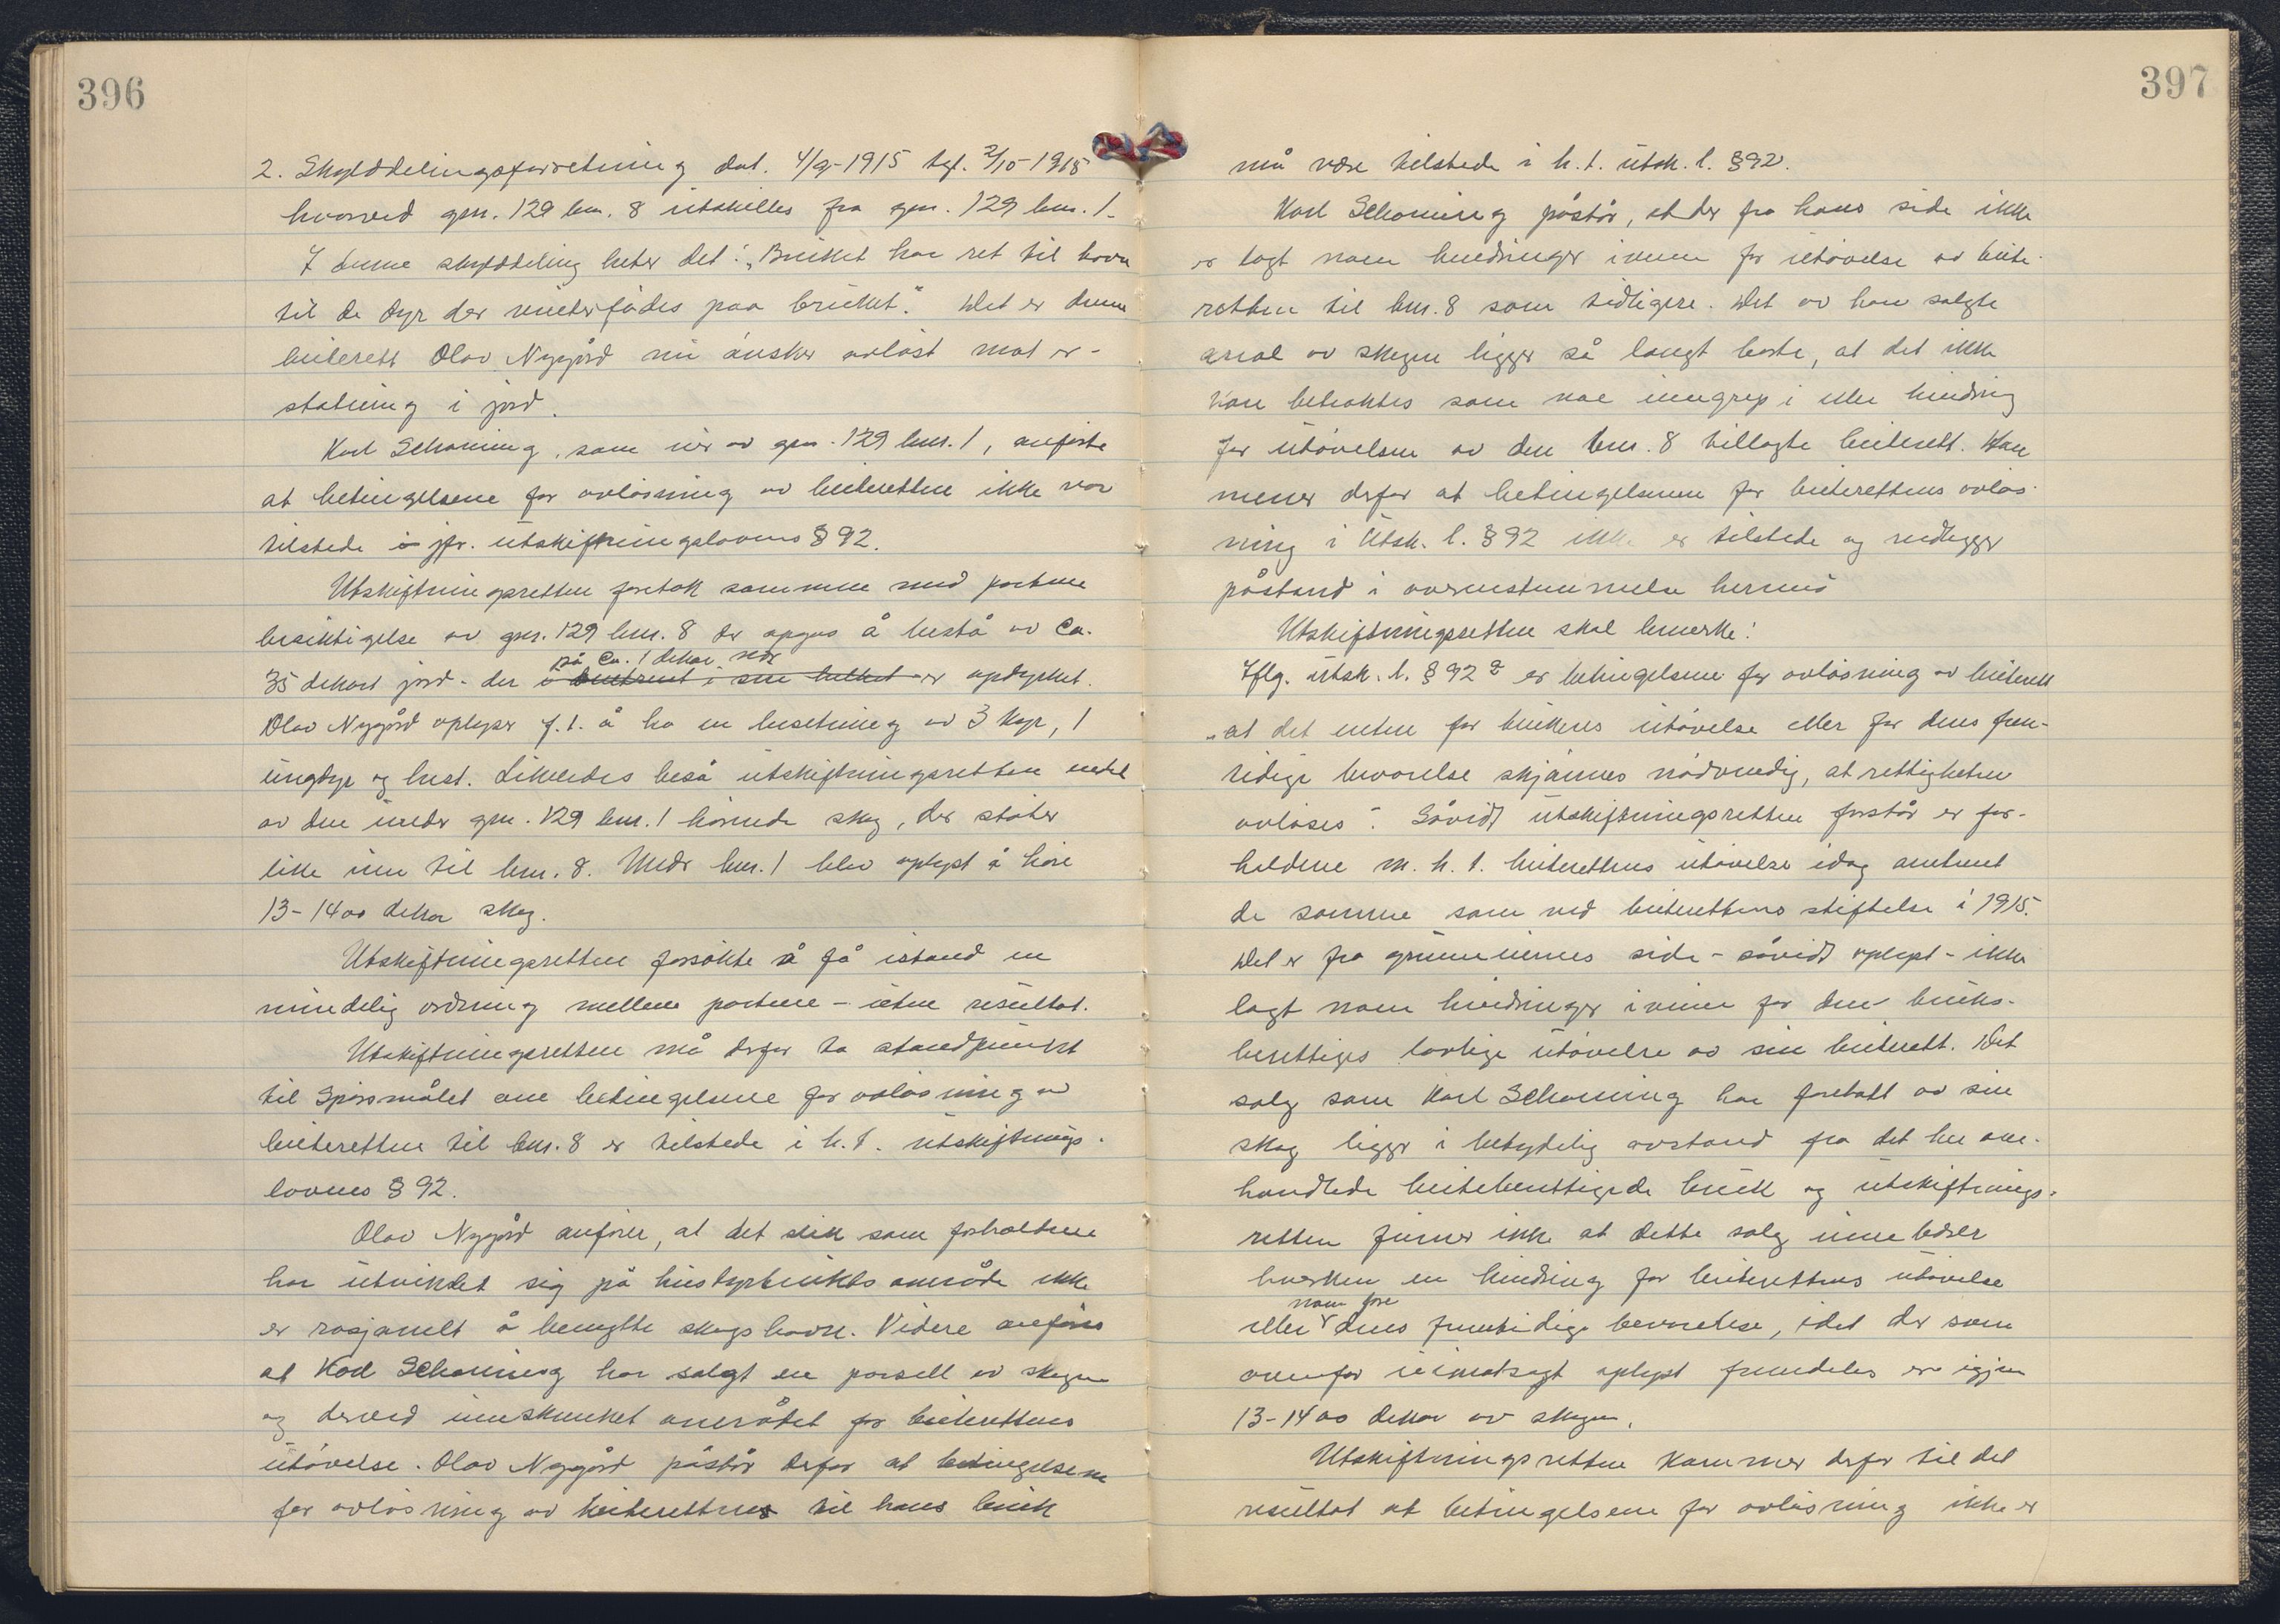 396
2. Skylddelingsforretning dat. 4/9-1915 tgl. 2/10-1915
hvorved gnr. 129 bnr. 8 utskilles fra gnr. 129 bnr. 1.
I denne skylddeling heter det: „Bruket har ret til havn
til de dyr der vinterfödes paa bruket." Det er denne
beiterett Olav Nygård nu ønsker avløst mot er-
statning i jord.
Karl Schøning, som eier av gnr. 129 bnr. 1, anførte
at betingelsene for avløsning av beiteretten ikke var
tilstede jfr. utskiftningslovens § 92.
Utskiftningsretten foretok sammen med partene
besiktigelse av gnr. 129 bnr. 8 der opgis å bestå av ca.
på ca. 1 dekar nær
35 dekart jord - der er opdyrket.
Olav Nygård oplyser f.t. å ha en besetning av 3 kyr, 1
ungdyr og hest. Likeledes beså utskiftningsretten endel
av den under gnr. 129 bnr. 1 hørende skog, der støter
like inn til bnr. 8. Under bnr. 1 blev oplyst å høre
13-1400 dekar skog.
Utskiftningsretten forsøkte å få istand en
mindelig ordning mellem partene - uten resultat.
Utskiftningsretten må derfor ta standpunkt
til Spørsmålet om betingelsene for avløsning av
beiteretten til bnr. 8 er tilstede i h.t. utskiftnings-
lovens § 92.
Olav Nygård anfører, at det slik som forholdene
har utviklet sig på husdyrbrukets område ikke
er rasjonelt å benytte skogshavn. Videre anføres
at Karl Schøning har solgt en parsell av skogen
og derved innskrenket området for beiterettens
utøvelse. Olav Nygård påstår derfor at betingelsene
for avløsning av beiterettens til hans bruk
397
må være tilstede i h.t. utsk. l. § 92.
Karl Schøning påstår, at der fra hans side ikke
er lagt noen hindringer iveien for utøvelse av beite-
retten til bnr. 8 som tidligere. Det av han solgte
areal av skogen ligger så langt borte, at det ikke
kan betraktes som noe inngrep i eller hindring
for utøvelsen av den bnr. 8 tillagte beiterett. Han
mener derfor at betingelsene for beiterettens avløs-
ning i Utsk. l. § 92 ikke er tilstede og nedlegger
påstand i overensstemmelse hermed
Utskiftningsretten skal bemerke:
Iflg. utsk. l. § 92 er betingelsene for avløsning av beiterett
„at det enten for brukens utøvelse eller for dens frem-
tidige bevarelse skjønnes nødvendig, at rettigheten
avløses". Såvidt utskiftningsretten forstår er for-
holdene m.h.t. beiterettens utøvelse idag omtrent
de samme som ved beiterettens stiftelse i 1915.
Det er fra grunneiernes side - såvidt oplyst - ikke
lagt noen hindringer iveien for den bruks-
berettiges lovlige utøvelse av sin beiterett. Det
salg som Karl Schøning har foretatt av sin
skog ligger i betydelig avstand fra det her om-
handlede beiteberettigede bruk og utskiftnings-
retten finner ikke at dette salg innebærer
hverken en hindring for beiterettens utøvelse
noen fare
eller dens fremtidige bevarelse, idet der som
ovenfor uimotsagt oplyst fremdeles er igjen
13-1400 dekar av skogen.
Utskiftningsretten kommer derfor til det
resultat at betingelsene for avløsning ikke er